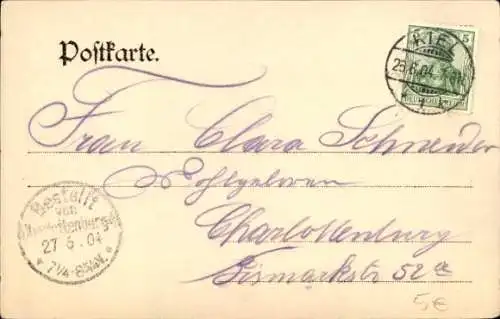 Postkarte.
5
KIEL
25.6.04.
Frau Clara Schneider
Wohlgeboren
Charlottenburg
Bismarckstr 52a
Bestellt
vom
Charlottenburg
27.6.04
7¼-8¼V.
5€